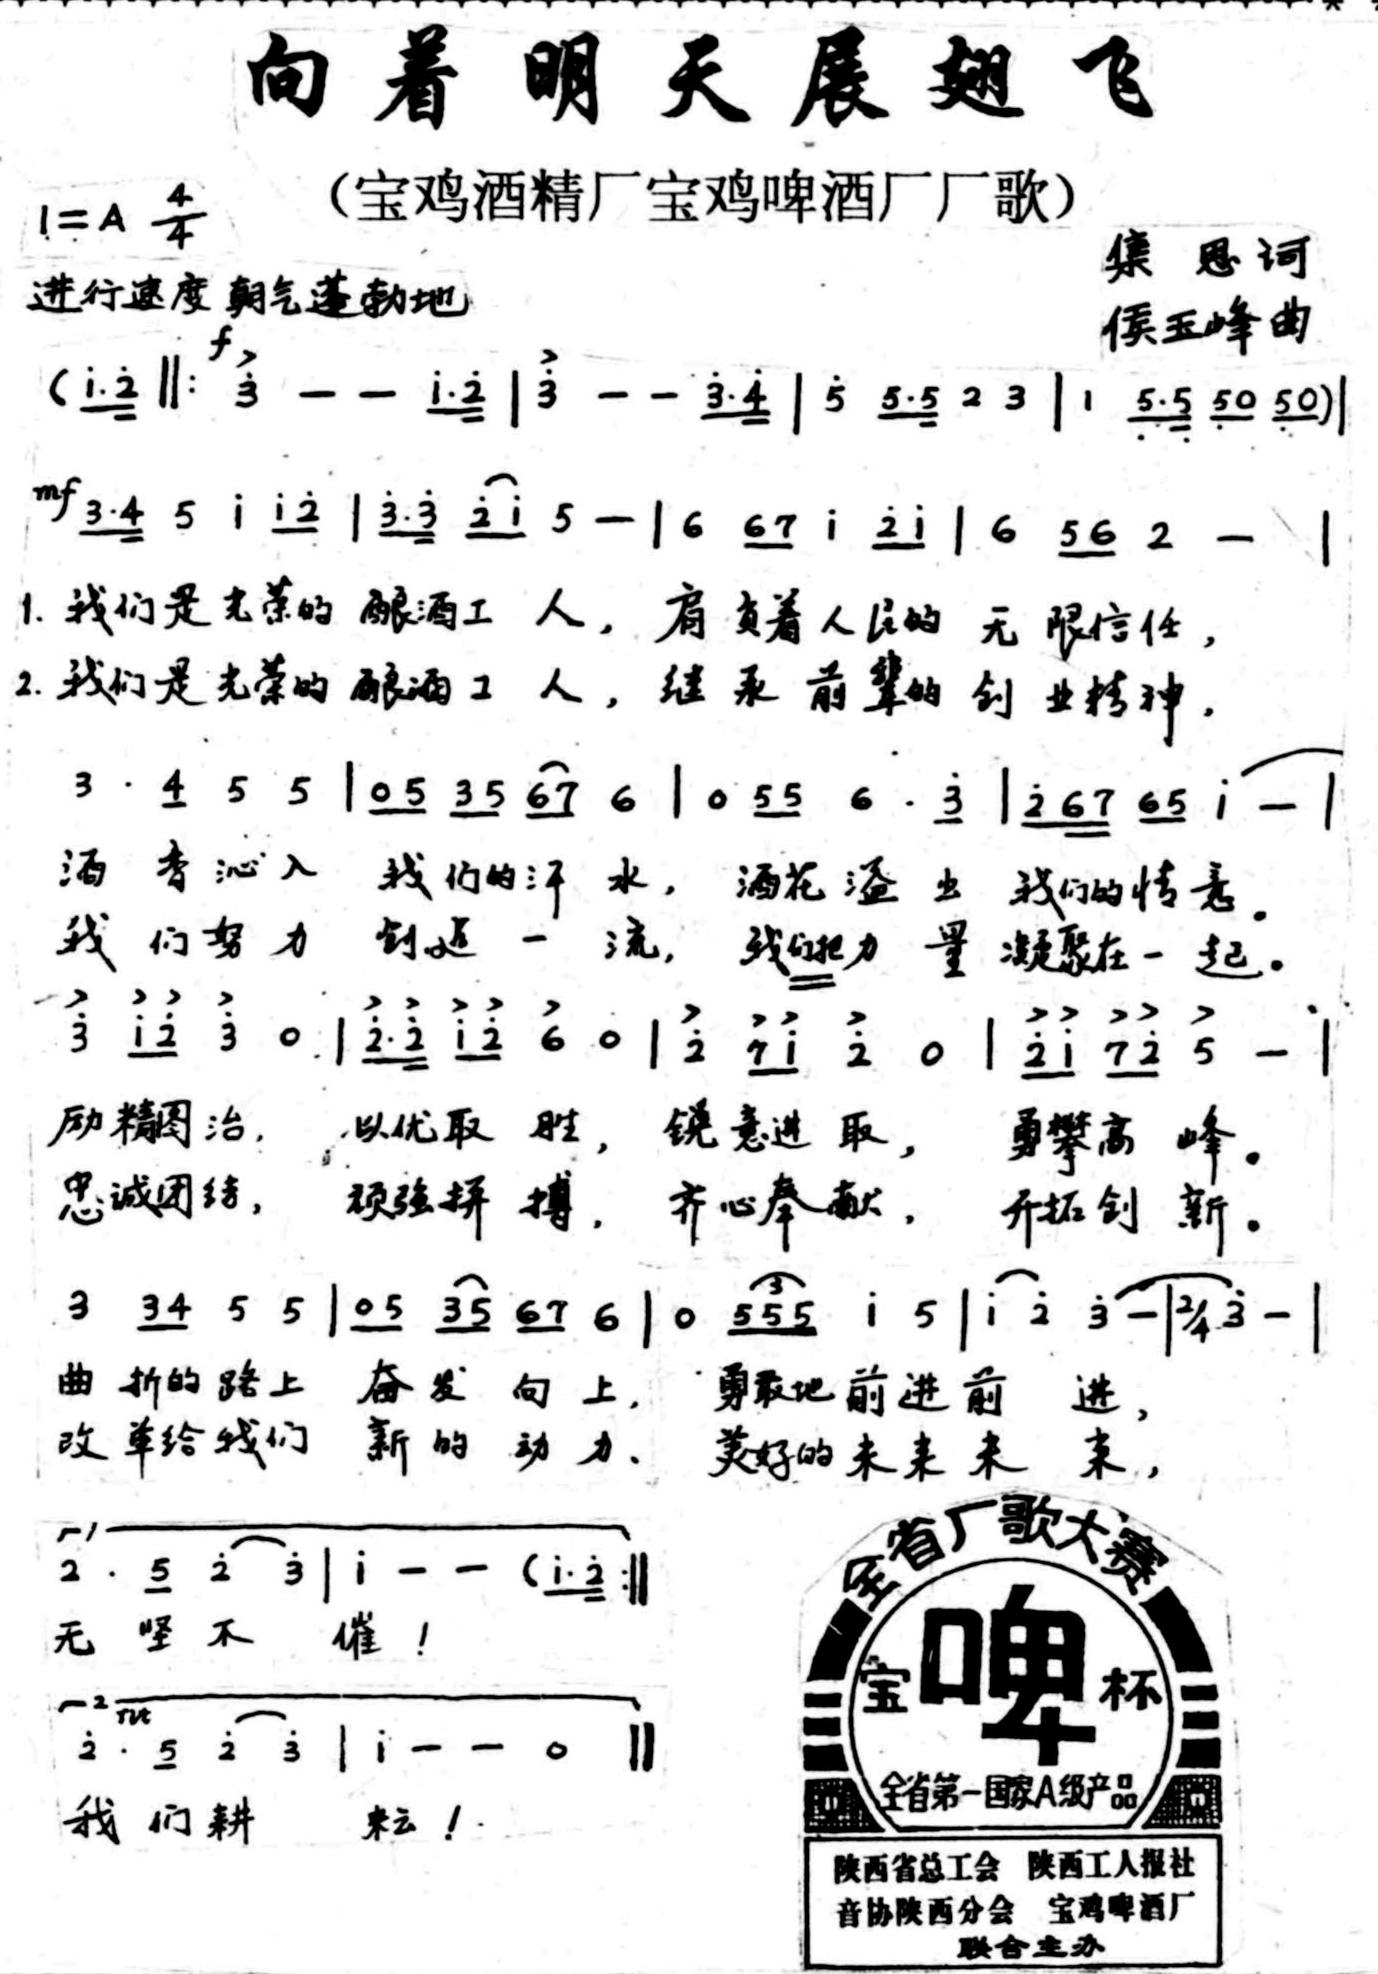 向着明天展翅飞
（宝鸡酒精厂宝鸡啤酒厂厂歌）
1=A 4/4
集恩词
进行速度 朝气蓬勃地
侯玉峰曲
f
(i·2 ‖: 3 — — i·2 | 3 — — 3·4 | 5 5·5 2 3 | 1 5·5 50 50)|
mf 3·4 5 i i2 | 3·3 2i 5 — | 6 67 i 2i | 6 56 2 — |
1. 我们是光荣的酿酒工人，肩负着人民的无限信任，
2. 我们是光荣的酿酒工人，继承前辈的创业精神，
3 · 4 5 5 | 05 35 67 6 | 0 55 6 · 3 | 267 65 i — |
酒香沁入 我们的汗水，酒花溢出 我们的情意。
我们努力 创造一流，我们把力量凝聚在一起。
3 i2 3 0 | 2·2 i2 6 0 | 2 7i 2 0 | 2i 72 5 — |
励精图治，以优取胜，锐意进取，勇攀高峰。
忠诚团结，顽强拼搏，齐心奉献，开拓创新。
3 34 5 5 | 05 35 67 6 | 0 555 i 5 | i 2 3 — | 2/4 3 — |
曲折的路上 奋发向上，勇敢地前进前进，
改革给我们 新的动力、美好的未来未来，
1
2 · 5 2 3 | i — — (i·2 :‖
无坚不催！
2 rit
2 · 5 2 3 | i — — 0 ‖
我们耕耘！
全省厂歌大赛
宝啤杯
全省第一国家A级产品
陕西省总工会 陕西工人报社
音协陕西分会 宝鸡啤酒厂
联合主办